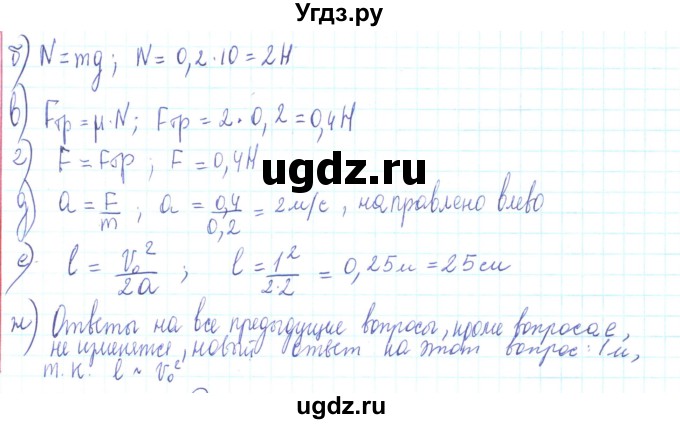 Угдз.ру
б) N = mg; N = 0,2·10 = 2Н
в) Fтр = μ·N; Fтр = 2·0,2 = 0,4Н
г) F = Fтр; F = 0,4Н
д) a = F/m; a = 0,4/0,2 = 2м/с, направлено влево
е) l = v₀²/2a; l = 1²/2·2 = 0,25м = 25см
ж) Ответы на все предыдущие вопросы, кроме вопроса е,
не изменятся, новый ответ на этот вопрос: 1м,
т.к. l ~ v₀²
ugdz.ru
ugdz.ru